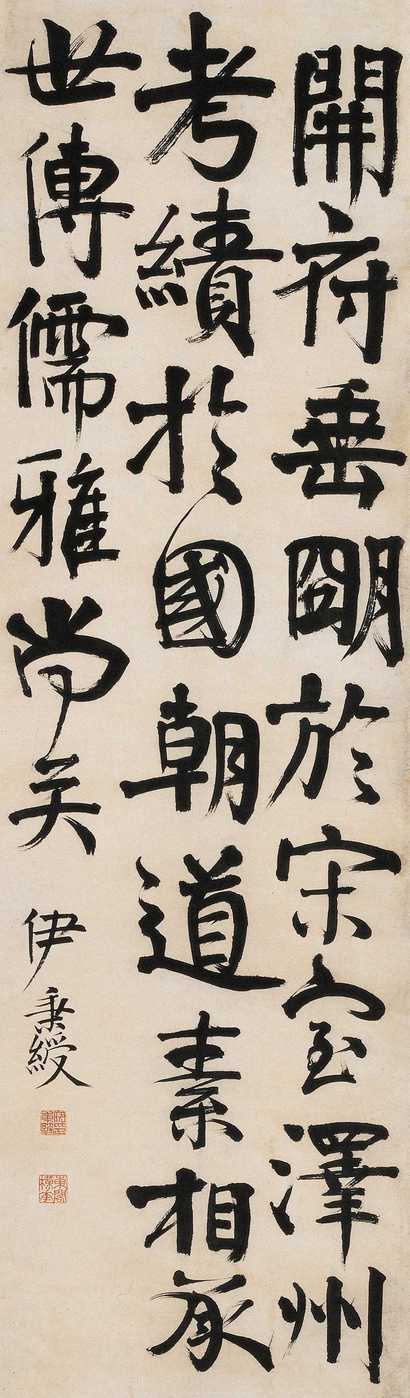 開府垂朙於宋室澤州
考績於國朝道素相承
世傳儒雅尚矣
伊秉綬